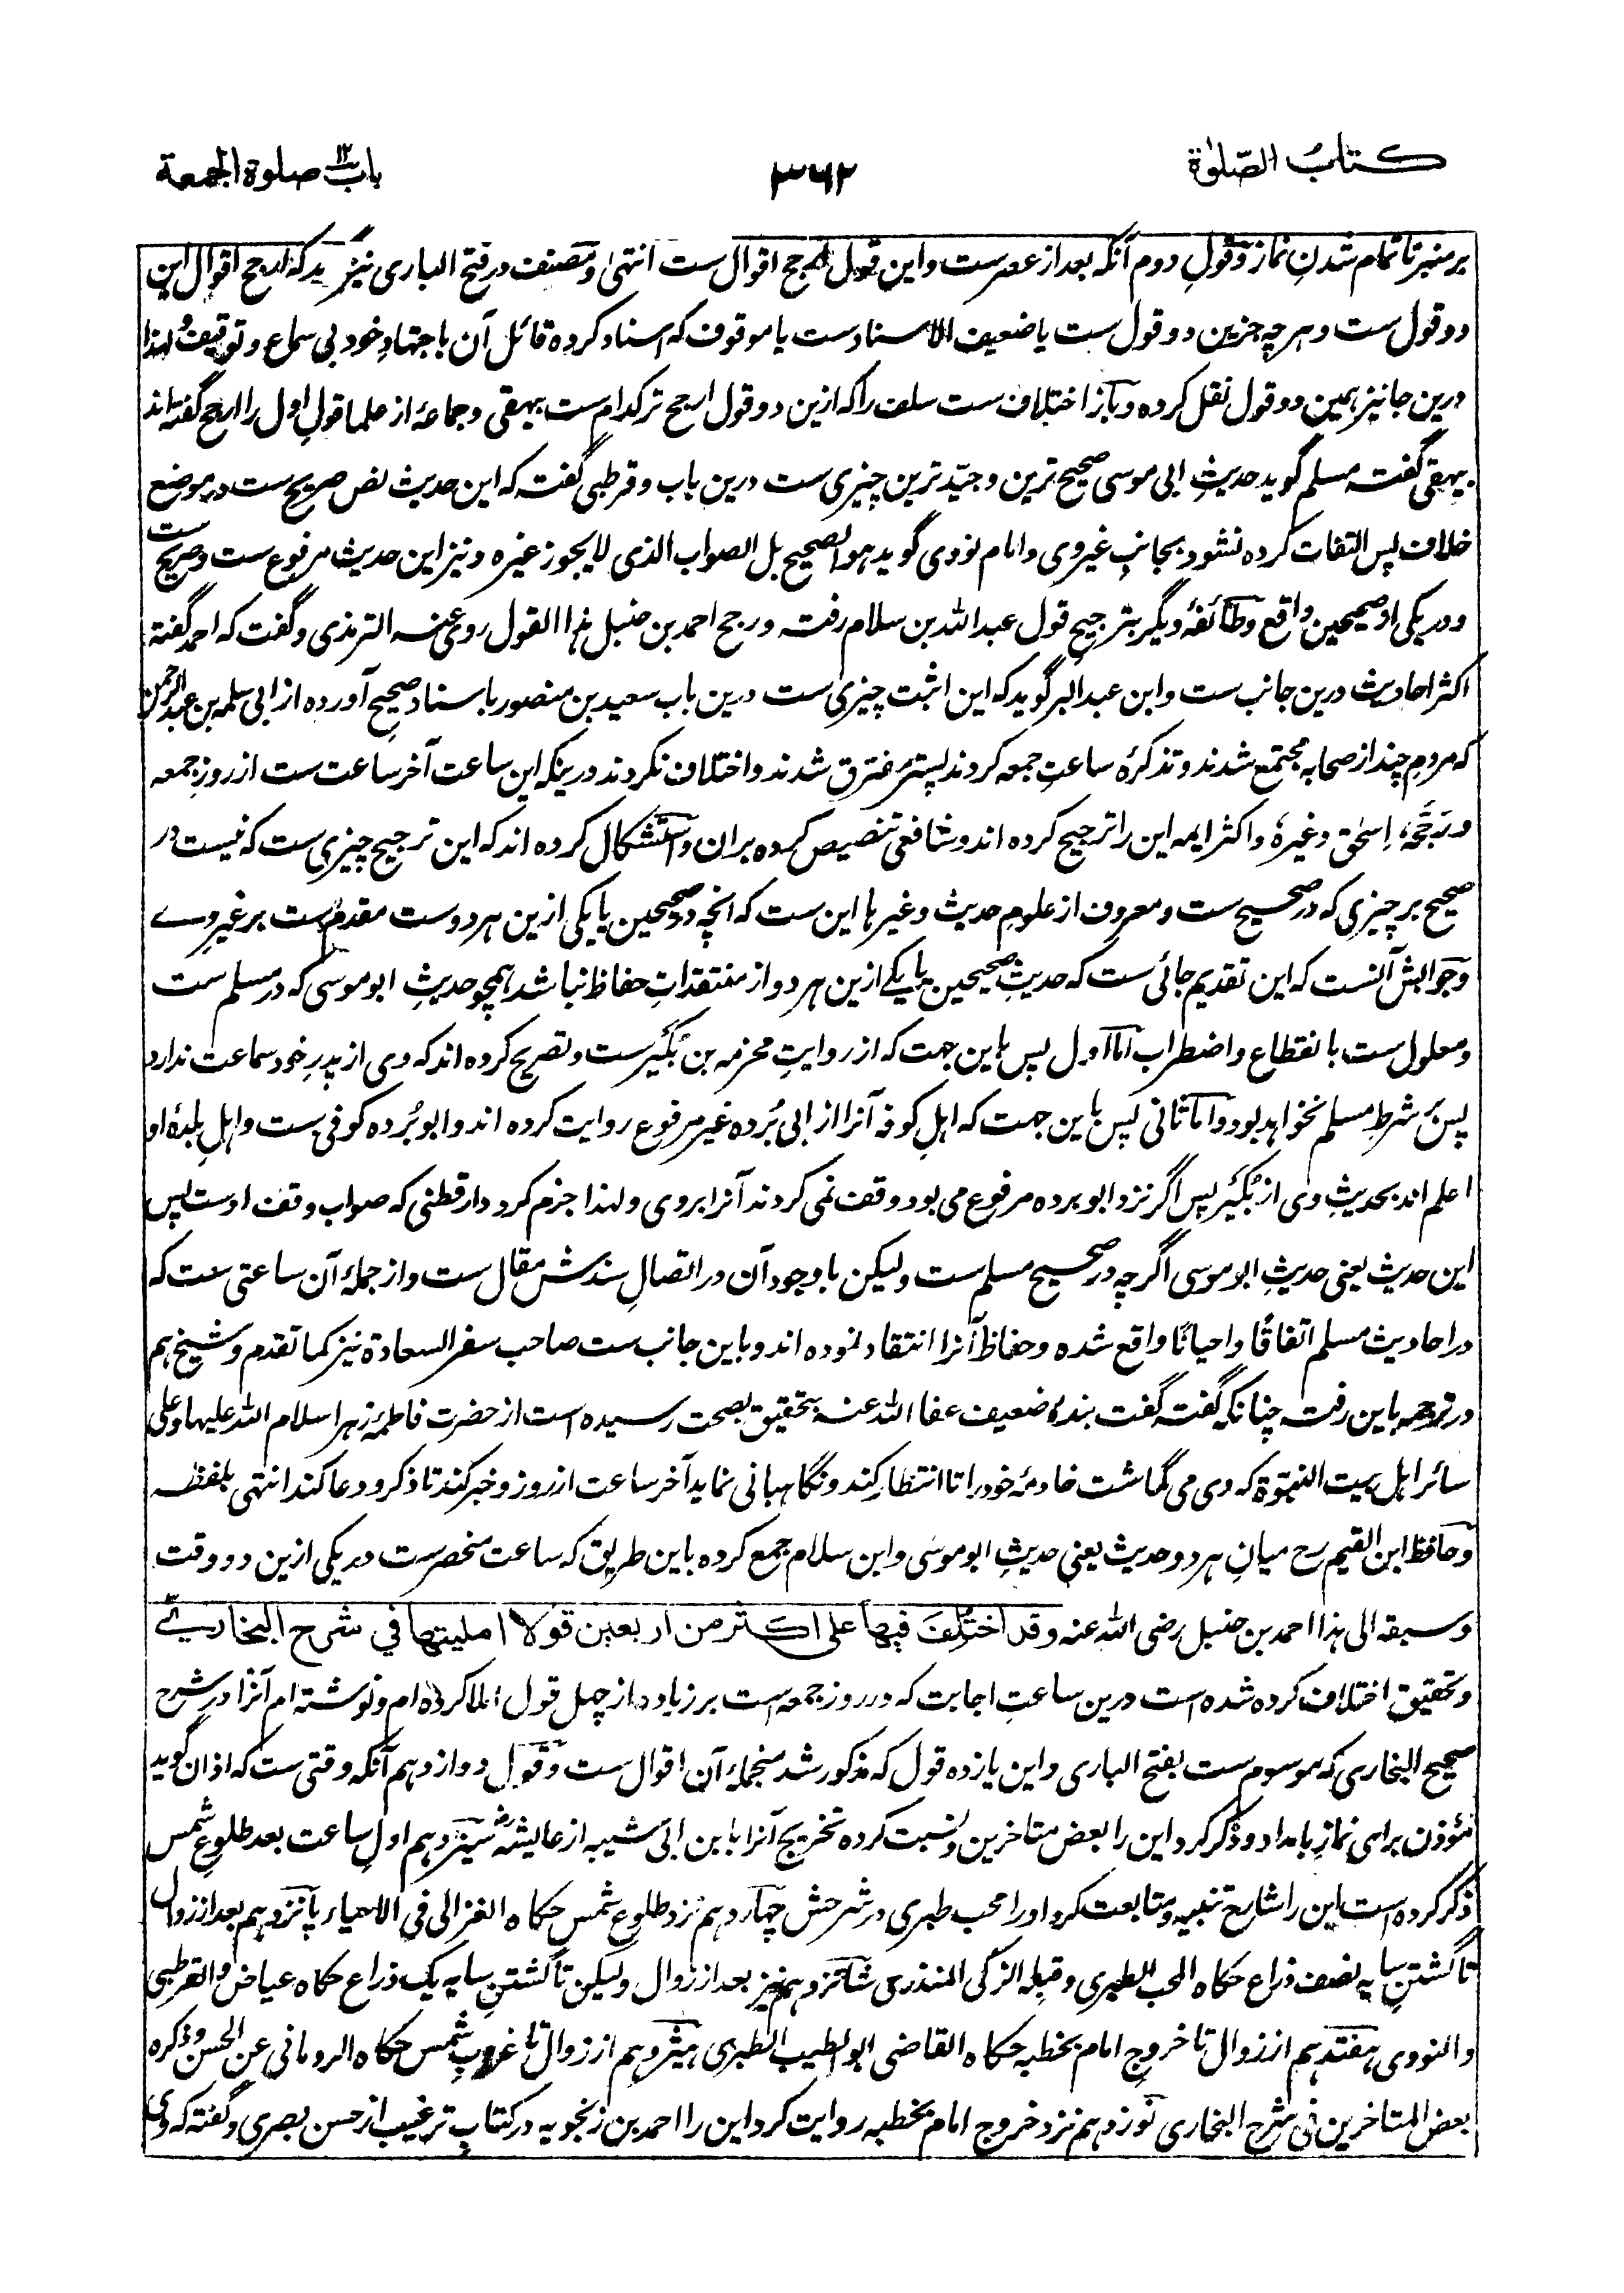 کتاب الصّلوٰة
۳۶۲
باب ۱۲ صلوة الجمعة
بر منبر تا تمام شدنِ نماز و قولِ دوم آنکه بعد از عصرست و این قول ارجح اقوال ست انتہیٰ و مصنف در فتح الباری نیز گوید که ارجح اقوال این
دو قول ست و ہرچہ جزین دو قول ست یا ضعیف الاسنادست یا موقوف که اسناد کرده قائل آن باجتہادِ خود بی سماع و توقیف و لہذا
درین جا نیز ہمین دو قول نقل کرده و باز اختلاف ست سلف را که ازین دو قول ارجح تر کدام ست بیہقی و جماعۂ از علما قولِ اول را ارجح گفته اند
بیہقی گفته مسلم گوید حدیثِ ابی موسی صحیح ترین و جیّد ترین چیزی ست درین باب و قرطبی گفت که این حدیث نص صریح ست در موضع
خلاف پس التفات کرده نشود بجانبِ غیر وی و امام نووی گوید ہو الصحیح بل الصواب الذی لا یجوز غیره و نیز این حدیث مرفوع ست و صریح ست
و در یکی از صحیحین واقع و طائفۂ دیگر بترجیحِ قول عبد اللہ بن سلام رفته و رجح احمد بن حنبل ہذا القول روی عنه الترمذی و گفت که احمد گفته
اکثر احادیث درین جانب ست و ابن عبد البر گوید که این اثبت چیزی ست درین باب سعید بن منصور باسناد صحیح آورده از ابی سلمه بن عبد الرحمن
که مردم چند از صحابه مجتمع شدند و تذکرۂ ساعتِ جمعه کردند پستر مفترق شدند و اختلاف نکردند درینکه این ساعت آخر ساعت ست از روزِ جمعه
و رَجَّحَهٗ اِسحٰق و غیرهٗ و اکثر ایمه این را ترجیح کرده اند و شافعی تنصیص کرده بران و استشکال کرده اند که این ترجیح چیزی ست که نیست در
صحیح بر چیزی که در صحیح ست و معروف از علومِ حدیث و غیرہا این ست که انچه در صحیحین یا یکی ازین ہر دوست مقدم ست بر غیرِ وے
و جوابش آنست که این تقدیم جائی ست که حدیثِ صحیحین یا یکے ازین ہر دو از منتقداتِ حفاظ نباشد ہمچو حدیثِ ابو موسی که در مسلم ست
و معلول ست بانقطاع و اضطراب اما اول پس باین جہت که از روایتِ مخرمه بن بُکَیرست و تصریح کرده اند که وی از پدرِ خود سماعت ندارد
پس بَر شرطِ مسلم نخواہد بود و اما ثانی پس باین جہت که اہلِ کوفه آنرا از ابی بُرده غیر مرفوع روایت کرده اند و ابو بُرده کوفی ست و اہلِ بلدۂ او
اعلم اند بحدیثِ وی از بُکَیر پس اگر نزد ابو برده مرفوع می بود وقف نمی کردند آنرا بروی و لہذا جزم کرد دارقطنی که صواب وقف اوست پس
این حدیث یعنی حدیثِ ابو موسی اگرچه در صحیح مسلم ست ولیکن باوجود آن در اتصالِ سندش مقال ست و از جملۂ آن ساعتی ست که
در احادیث مسلم اتفاقًا و احیانًا واقع شده و حفاظ آنرا انتقاد نموده اند و باین جانب ست صاحب سفر السعادة نیز کما تقدم و شیخ ہم
در ترجمه باین رفته چنانکه گفته گفت بندۂ ضعیف عفا اللہ عنه بتحقیق بصحت رسیده است از حضرت فاطمۂ زہرا سلام اللہ علیہا و علی
سائر اہل بیت النبوّة که وی می گماشت خادمۂ خود را تا انتظار کند و نگاہبانی نماید آخر ساعت از روز و خبر کند تا ذکر و دعا کند انتہی بلفظه
و حافظ ابن القیم رح میانِ ہر دو حدیث یعنی حدیثِ ابو موسی و ابن سلام جمع کرده باین طریق که ساعت منحصرست در یکی ازین دو وقت
و سبقه الی ہذا احمد بن حنبل رضی اللہ عنه وقد اختُلِفَ فیها علی اکثر من اربعین قولا املیتها فی شرح البخاری
و تحقیق اختلاف کرده شده است درین ساعتِ اجابت که در روز جمعه است بر زیاده از چہل قول املا کرده ام و نوشته ام آنرا در شرح
صحیح البخاری که موسوم ست بفتح الباری و این یازده قول که مذکور شد منجملۂ آن اقوال ست و قول دوازدہم آنکه وقتی ست که اذان گوید
مؤذن برای نمازِ بامداد و ذکر کرد این را بعض متاخرین و نسبت کرده تخریج آنرا بابن ابی شیبه از عایشه رض سیزدہم اولِ ساعت بعد طلوع شمس
ذکر کرده است این را شارح تنبیه و متابعت کرد او را محب طبری در شرحش چہاردہم نزد طلوع شمس حکاه الغزالی فی الاحیاء پانزدہم بعد از زوال
تا گشتنِ سایه نصف ذراع حکاه المحب الطبری و قبله الزکی المنذری شانزدہم نیز بعد از زوال ولیکن تا گشتنِ سایه یک ذراع حکاه عیاض و القرطبی
و النووی ہفتدہم از زوال تا خروجِ امام بخطبه حکاه القاضی ابو الطیب الطبری ہیژدہم از زوال تا غروب شمس حکاه الرومانی عن الحسن و ذکره
بعض المتاخرین فی شرح البخاری نوزدہم نزد خروج امام بخطبه روایت کرد این را احمد بن زنجویه در کتاب ترغیب از حسن بصری و گفته که وی